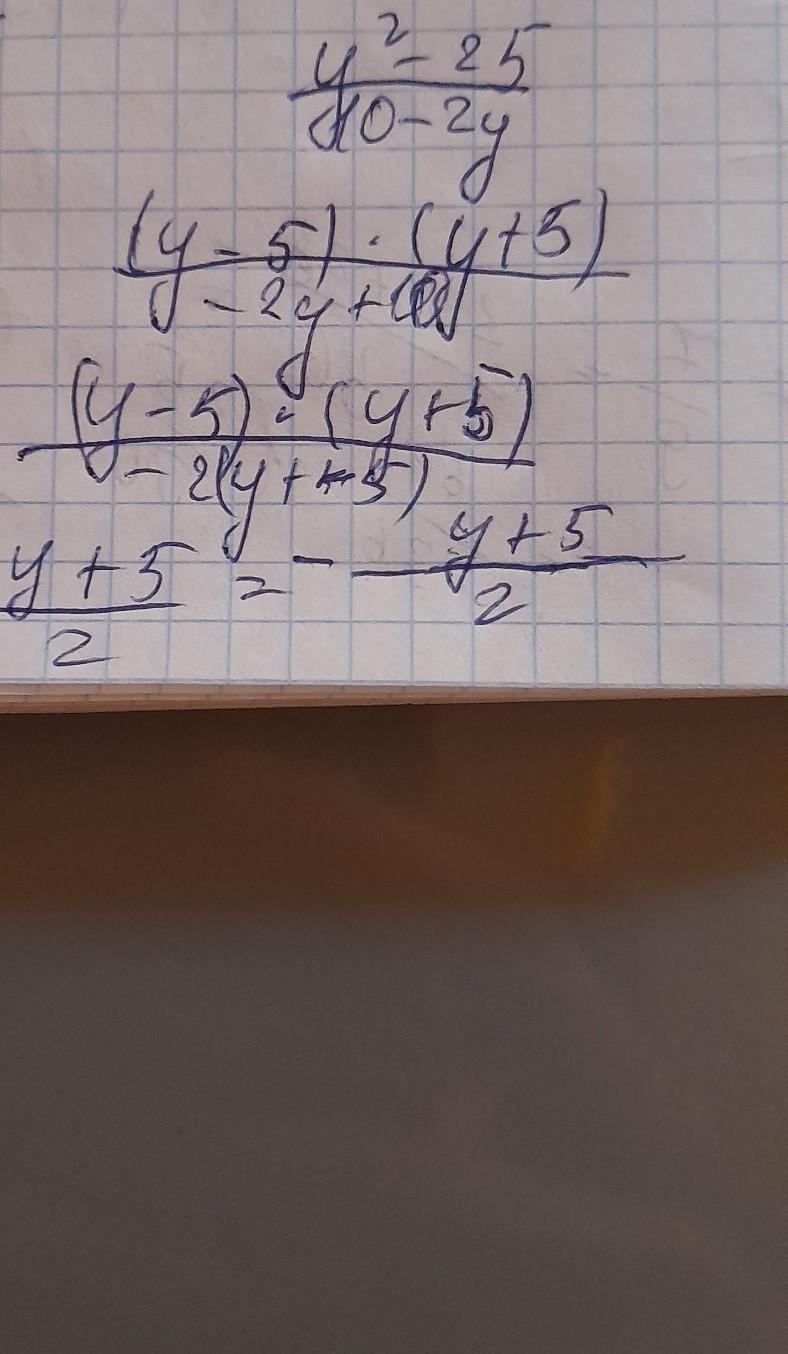 y² - 25
10 - 2y
(y - 5) · (y + 5)
- 2y + 10
(y - 5) · (y + 5)
- 2(y + - 5)
y + 5 = - y + 5
2 2